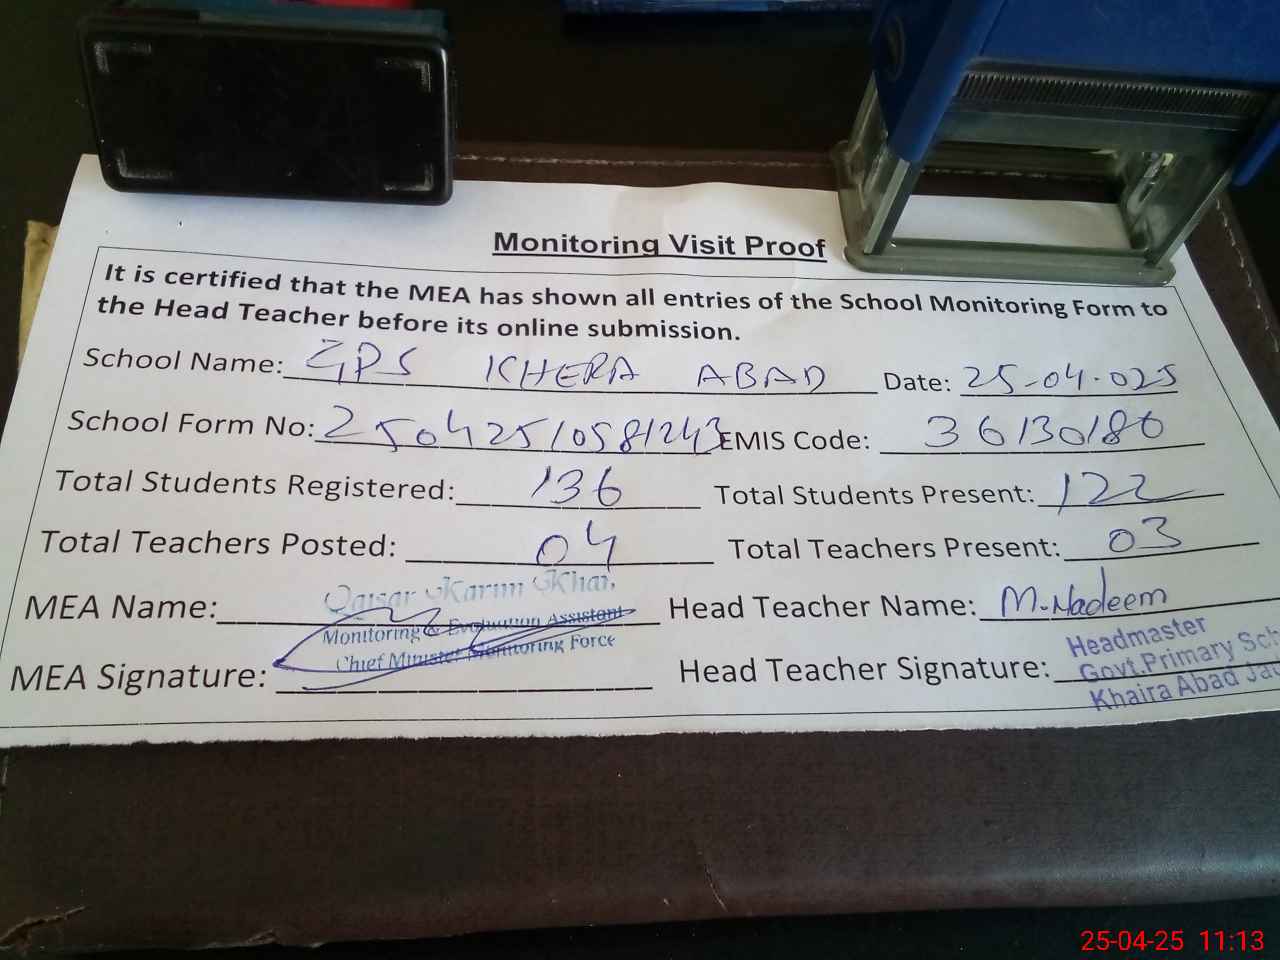 Monitoring Visit Proof
It is certified that the MEA has shown all entries of the School Monitoring Form to
the Head Teacher before its online submission.
School Name: GPS KHERA ABAD Date: 25-04-025
School Form No: 25042510581243 EMIS Code: 36130186
Total Students Registered: 136 Total Students Present: 122
Total Teachers Posted: 04 Total Teachers Present: 03
MEA Name: Qaisar Karim Khan Head Teacher Name: M.Nadeem
Monitoring & Evaluation Assistant
Chief Minister Monitoring Force
MEA Signature: Head Teacher Signature:
Headmaster
Govt.Primary Sch
Khaira Abad
25-04-25 11:13